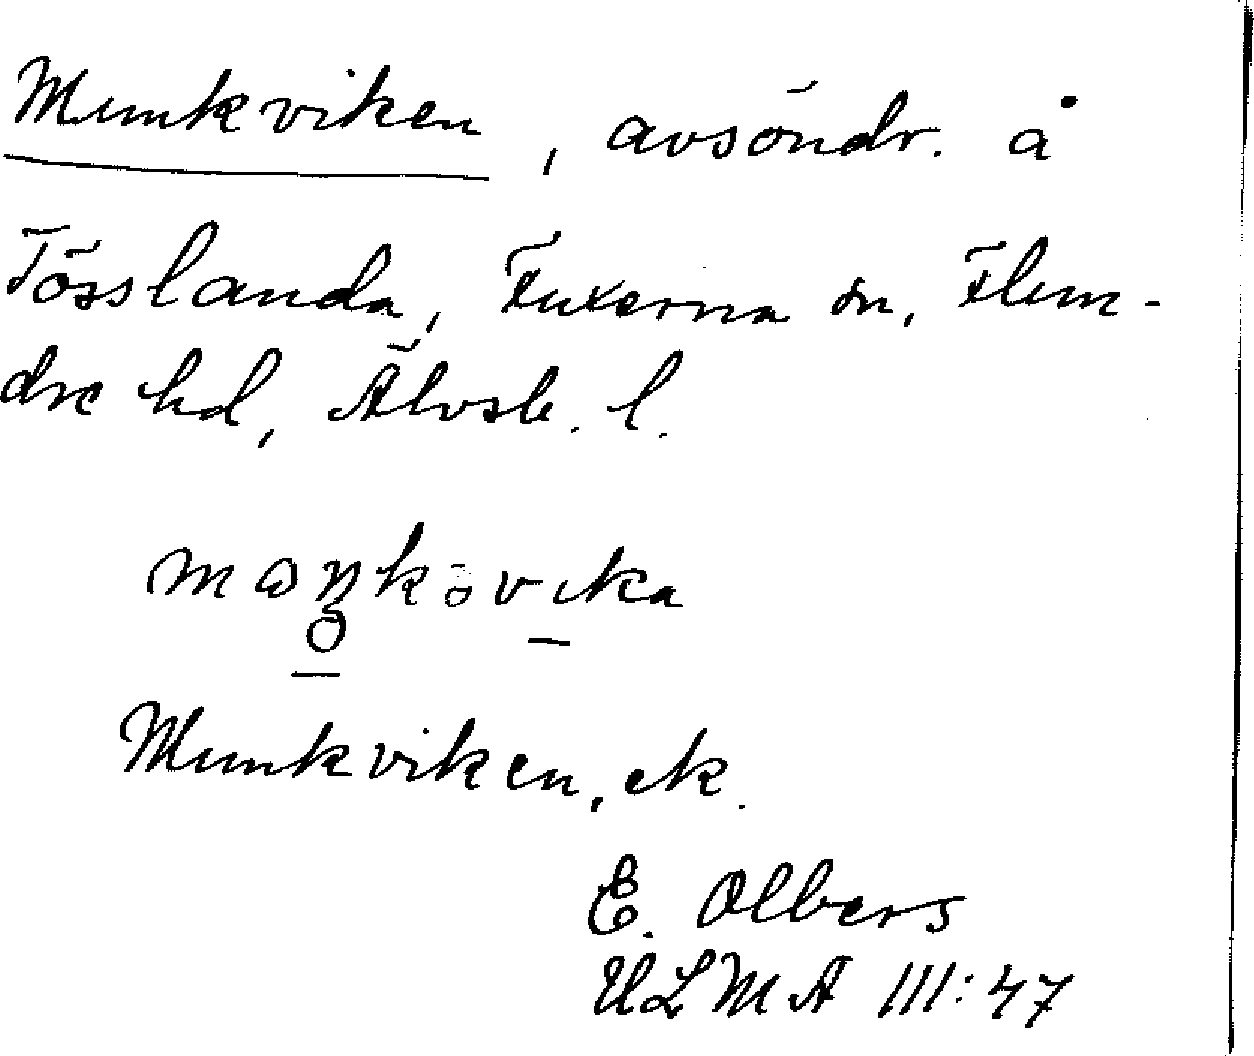 Munkviken, avsöndr. å
Tösslanda, Fuxerna sn, Flun-
dre hd, Älvsb. l.
Munkviken, ek.
E. Olbers
ULMA 111:47